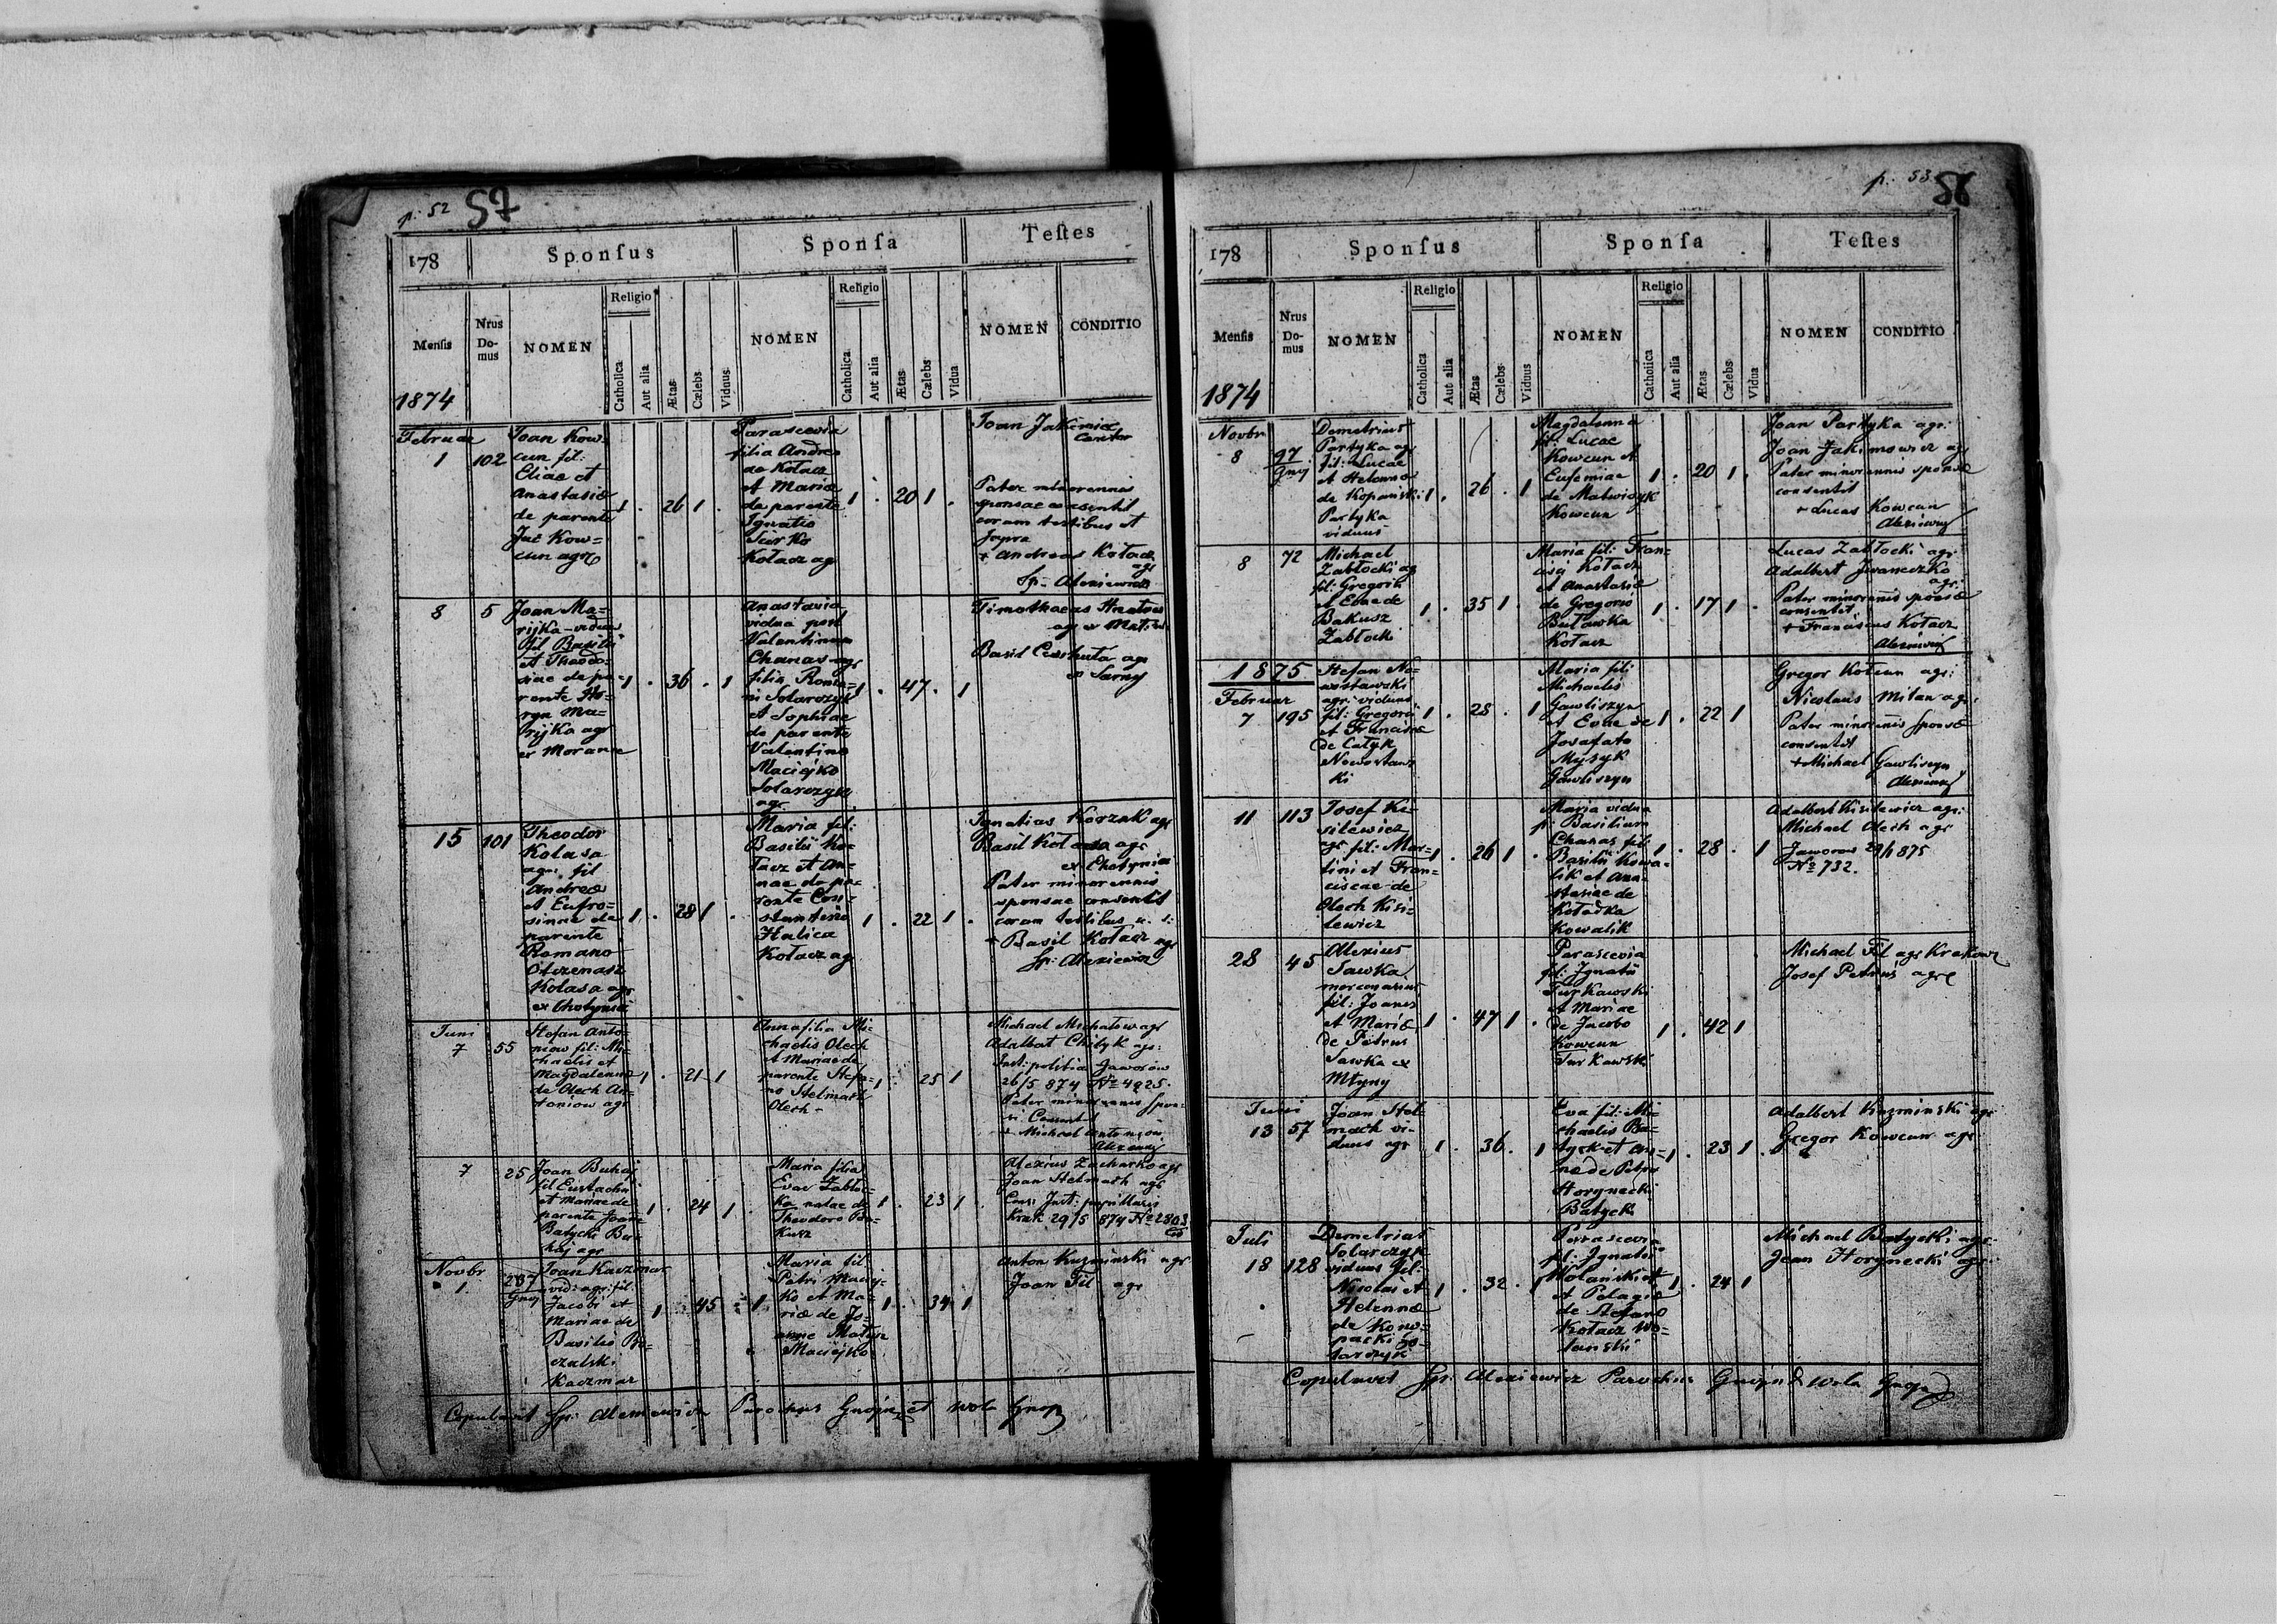 p. 52 57
178 Sponſus Sponſa Teſtes
Menſis Nrus Do-mus NOMEN Religio Catholica Aut alia Ætas Cælebs Viduus NOMEN Religio Catholica Aut alia Ætas Cælebs Vidua NOMEN CONDITIO
1874
Februar
1 102
Joan Kow-
cun fil:
Eliae et
Anastasiæ
de parente
Jac Kow=
cun agr
1 . 26 1 .
Parascevia
filia Andre
de Kołacz
et Mariæ
de parente
Ignatio
Kołacz agr
1 . 20 1 .
Joan Jakimicz
Cantor
Pater minorennis
sponsae consentit
coram testibus et
+ Andreas Kołacz
agr
Sp. Alexiewicz
8 5
Joan Ma-
rijka viduus
fil Basilii
et Theodo-
siae de pa-
rente Ho-
ryn Ma-
rijka agr
ex Morance
1 . 36 . 1
Anastasia
vidua post
Valentinum
Chanas agr
filia Roma-
ni Solarczyk
et Sophiae
de parente
Valentino
Maciejko
Solarczyk
agr
1 . 47 . 1
Timotheus
agr
Basil agr
ex Sarny
15 101
Theodor
Kolasa
agr: fil
Andreæ
et Eufro-
sinnæ de
parente
Romano
Otczenasz
Kolasa agr
ex Chotyniec
1 . 28 1 .
Maria fil:
Basilii Ko-
łacz et An-
nae de pa-
rente Con-
stantino
Halica
Kołacz agr
1 . 22 1 .
Ignatius Korzak agr
Basil Kolasa agr
ex Chotyniec
Pater minorennis
sponsae consentit
coram testibus u. s:
+ Basil Kołacz agr
Sp: Alexiewicz
Juni
7 55
Stefan Anto-
niow fil: Mi-
chaelis et
Magdalennæ
de Olech An-
toniow agr
1 . 21 1
Anna filia Mi-
chaelis Olech
et Mariae de
parente Stefa-
no Stelmach
Olech
1 . 25 1
Michael Michałow agr
Adalbert Chilyk agr:
Inst: politia Jaworów
26/5 874 No 4925.
Pater minorennis spon-
si Consentit
+ Michael Antoniow
Alexiewicz
7 25
Joan Buhaj
fil Eustachii
et Mariae de
parente Joane
Batycki Bu-
haj agr
1 . 24 1 .
Maria filia
Evae Zabłoc-
ka natae de
Theodoro Ba-
kusz
1 . 23 1 .
Alexius Zacharko agr
Joan Stelmach agr
Cons Inst: pupillaris
Krak 29/5 874 No 2803
Novbr
1 237
Gnoj
Joan Kaczmar
vid: agr: fil:
Jacobi et
Mariae de
Basilio Be-
czalski
Kaczmar
1 . 45 . 1
Maria fil
Petri Maciej-
ko et Ma-
riæ de Jo-
anne Małysz
Maciejko
1 . 34 1
Anton Kuzminski agr
Joan Fil agr
Copulavit Sp: Alexiewicz Parochus Gnojnic et Wola Gnoj
p. 53 58
178 Sponſus Sponſa Teſtes
Menſis Nrus Do-mus NOMEN Religio Catholica Aut alia Ætas Cælebs Viduus NOMEN Religio Catholica Aut alia Ætas Cælebs Vidua NOMEN CONDITIO
1874
Novbr
8 97
Gnoj
Demetrius
Partyka agr
fil: Lucae
et Helennæ
de Kopański
Partyka
viduus
1 . 26 . 1
Magdalenna
fil: Lucae
Kowcun et
Eufemiae
de Matwiejyk
Kowcun
1 . 20 1 .
Joan Partyka agr:
Joan Jakimowicz agr
Pater minorennis sponsæ
consentit
+ Lucas Kowcun
Alexiewicz
8 72
Michael
Zabłocki agr
fil: Gregorii
et Evae de
Bakusz
Zabłocki
1 . 35 1 .
Maria fil: Fran-
cisci Kołacz
et Anastasiæ
de Gregorio
Buławka
Kołacz
1 . 17 1 .
Lucas Zabłocki agr
Adalbert Iwaneczko
agr:
Pater minorennis sponsæ
consentit
+ Franciscus Kołacz
Alexiewicz
1875
Februar
7 195
Stefan No-
wosławski
agr: viduus
fil: Gregorii
et Franciscæ
de Całyk
Nowosław-
ski
1 . 28 . 1
Maria fil:
Michaelis
Gawliszyn
et Evae de
Josafato
Mysyk
Gawliszyn
1 . 22 1
Gregor Kotcun agr:
Nicolaus Milan agr:
Pater minorennis sponsæ
consentit
+ Michael Gawliszyn
Alexiewicz
11 113
Josef Ki-
silewicz
agr fil: Mar-
tini et Fran-
ciscae de
Olech Kisi-
lewicz
1 . 26 1 .
Maria vidua
p: Basilium
Chanas fil
Basilii Kowa-
lik et Ana-
stasiae de
Kowalik
1 . 28 . 1
Adalbert Kisilewicz agr:
Michael Olech agr
Jaworow 29/1 875
No 732.
28 45
Alexius
Sawka
mercenarius
fil: Joanis
et Mariæ
de Petrus
Sawka ex
Młyny
1 . 47 1 .
Parascevia
fil: Ignatii
Turkawski
et Mariae
de Jacobo
Kowcun
Turkawski
1 . 42 1
Michael Fil agr Krakow
Josef Petrus agr
Juni
13 57
Joan Stel-
mach vi-
duus agr
1 . 36 . 1
Eva fil: Mi-
chaelis Ba-
tycki et An-
næ de Petro
Horynecki
Batycki
1 . 23 1 .
Adalbert Kuzminski agr
Gregor Kowcun agr
Juli
18 128
Demetrius
Solarczyk
viduus fil:
Nicolai et
Helennæ
de Kono-
packi So-
larczyk
1 . 32 . 1
Parascevia
fil: Ignatii
Wolański
et Pelagiæ
de Stefano
Kołacz Wo-
lański
1 . 24 1
Michael Batycki agr
Joan Horynecki agr
Copulavit Sp: Alexiewicz Parochus Gnojnic & Wola Gnoj